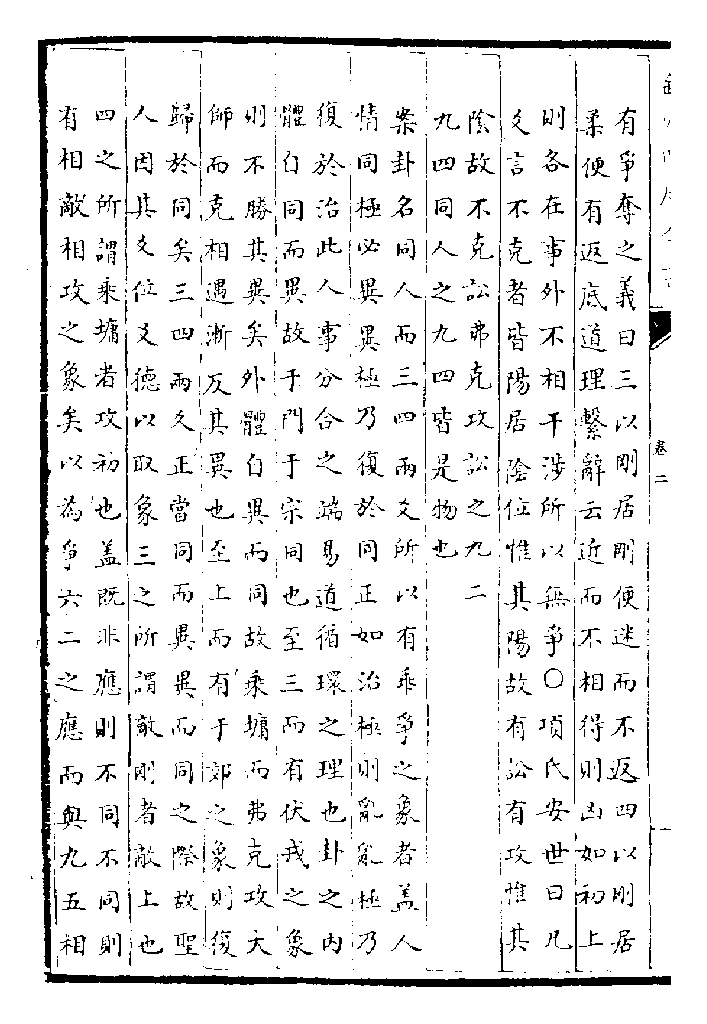 有爭奪之義曰三以剛居剛便迷而不返四以剛居
柔便有返底道理繫辭云近而不相得則凶如初上
則各在事外不相干涉所以無爭○項氏安世曰凡
爻言不克者皆陽居陰位惟其陽故有訟有攻惟其
陰故不克訟弗克攻訟之九二
九四同人之九四皆是物也
案卦名同人而三四兩爻所以有乖爭之象者蓋人
情同極必異異極乃復於同正如治極則亂亂極乃
復於治此人事分合之端易道循環之理也卦之内
體自同而異故于門于宗同也至三而有伏戎之象
則不勝其異矣外體自異而同故乘墉而弗克攻大
師而克相遇漸反其異也至上而有于郊之象則復
歸於同矣三四兩爻正當同而異異而同之際故聖
人因其爻位爻德以取象三之所謂敵剛者敵上也
四之所謂乘墉者攻初也蓋既非應則不同不同則
有相敵相攻之象矣以為爭六二之應而與九五相
卷二